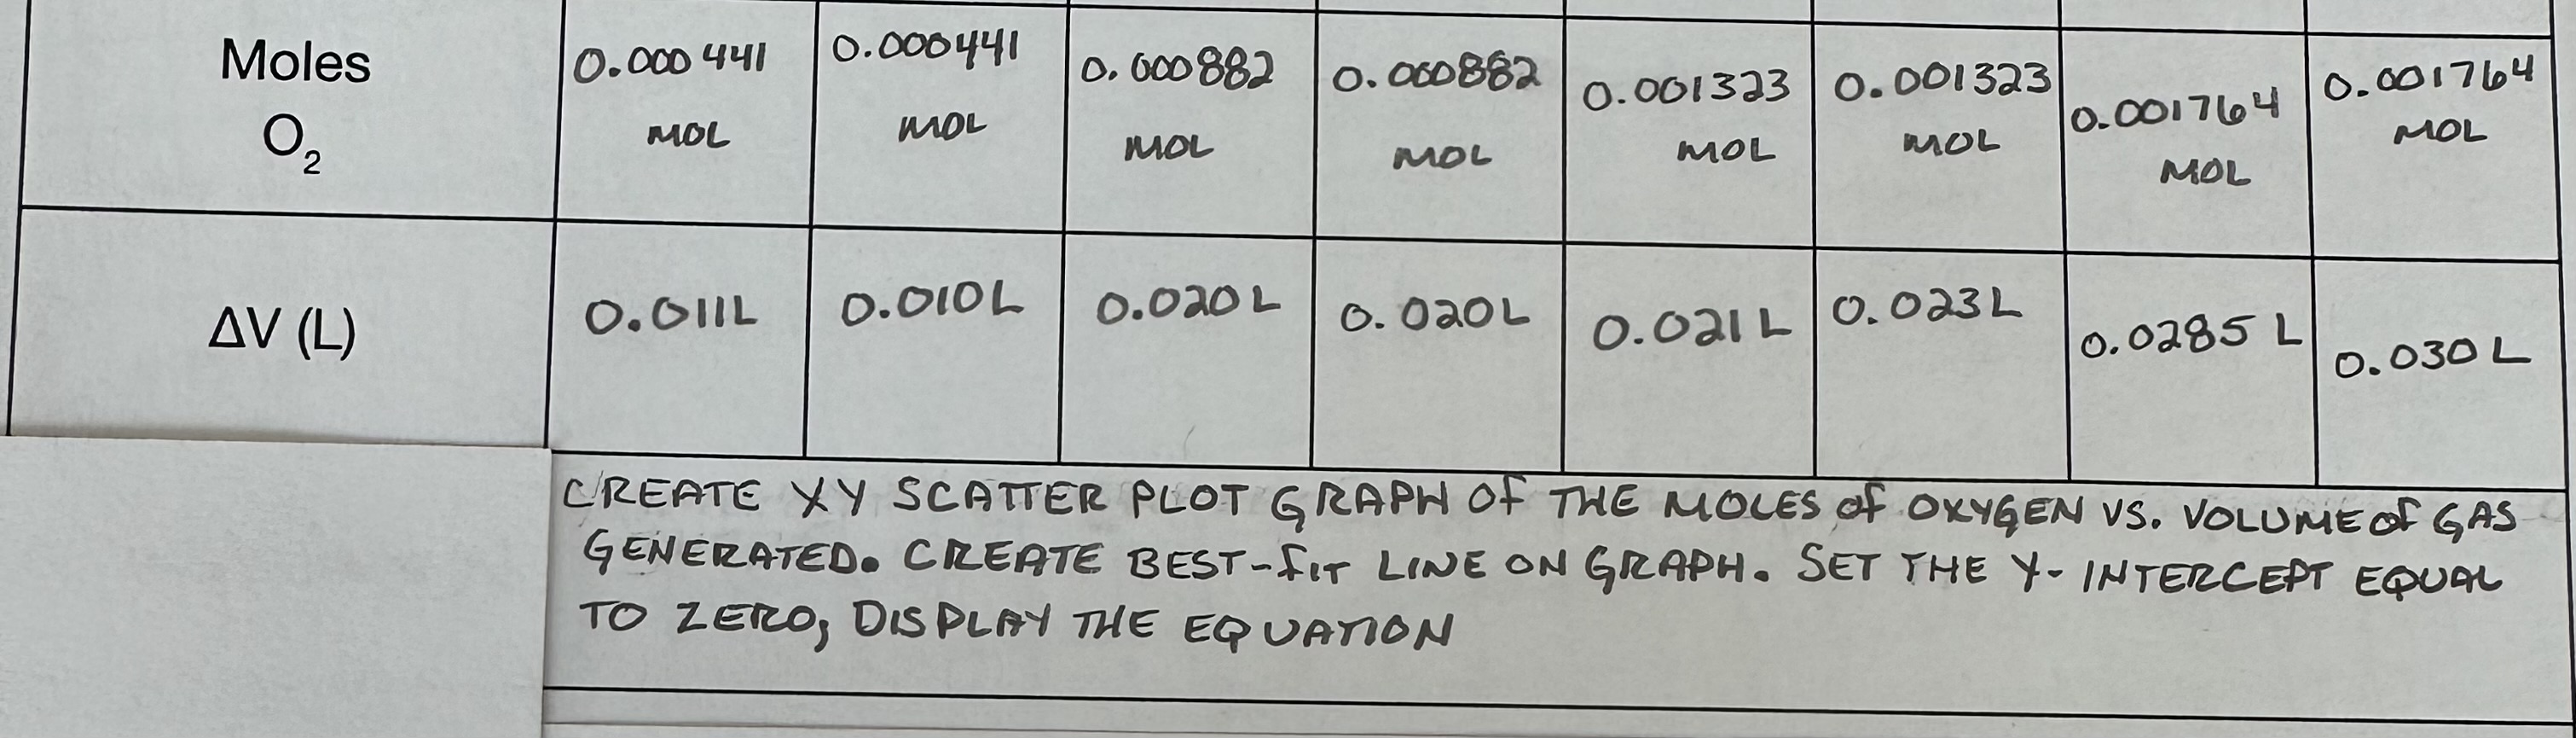 Moles
O₂
0.000441
MOL
0.000441
MOL
0.000882
MOL
0.000882
MOL
0.001323
MOL
0.001323
MOL
0.001764
MOL
0.001764
MOL
ΔV (L)
0.011L
0.010L
0.020 L
0.020L
0.021 L
0.023L
0.0285 L
0.030 L
CREATE XY SCATTER PLOT GRAPH Of THE MOLES of OXYGEN VS. VOLUME Of GAS
GENERATED. CREATE BEST-fIT LINE ON GRAPH. SET THE Y-INTERCEPT EQUAL
TO ZERO; DISPLAY THE EQUATION